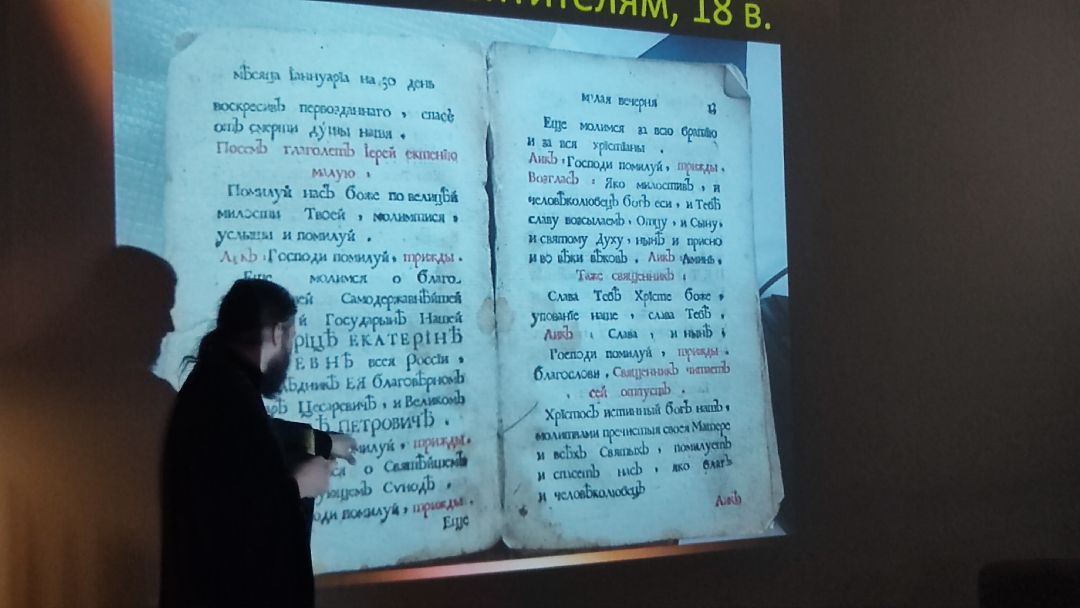 тителям, 18 в.
мѣсяца Іаннуаріа на 30 день
воскресивъ первозданнаго, спасе
отъ смерти душы наша.
Посемъ глаголетъ Іерей ектенію
малую.
Помилуй насъ боже по велицѣй
милости Твоей, молимтися,
услыши и помилуй.
Ликъ: Господи помилуй, трижды.
Еще молимся о благо-
Самодержавнѣйшей
Государынѣ Нашей
ЕКАТЕРІНѢ
ЕВНѢ всея Россіи,
ЕЯ благовѣрномъ
Цесаревичѣ, и Великомъ
ПЕТРОВИЧѢ.
трижды.
о Святѣйшемъ
Сѵнодѣ,
помилуй, трижды.
Еще
малая вечерня
Еще молимся за всю братию
и за вся хрістіаны.
Ликъ: Господи помилуй, трижды.
Возгласъ: Яко милостивъ, и
человѣколюбецъ богъ еси, и Тебѣ
славу возсылаемъ, Отцу, и Сыну,
и святому Духу, нынѣ и присно
и во вѣки вѣковъ. Ликъ: Аминь.
Таже священникъ:
Слава Тебѣ Хрісте боже,
упованіе наше, слава Тебѣ.
Ликъ: Слава, и нынѣ.
Господи помилуй, трижды.
благослови. Священникъ читаетъ
сей отпустъ.
Хрістосъ истинный богъ нашъ,
молитвами пречистыя своея Матере
и всѣхъ Святыхъ, помилуетъ
и спасетъ насъ, яко благъ
и человѣколюбецъ
Ликъ